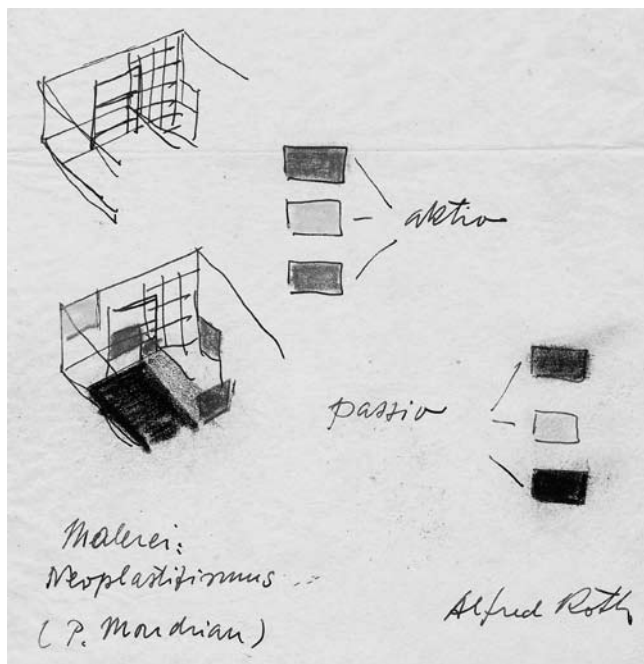 aktiv
passiv
Malerei:
Neoplastizismus
(P. Mondrian)
Alfred Roth